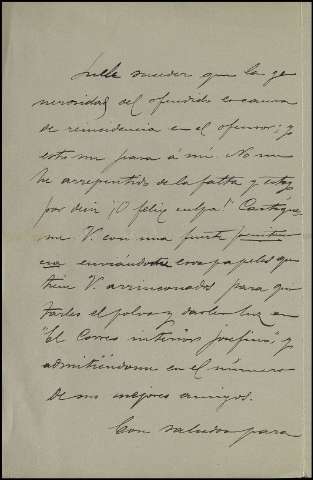 Suele suceder que la ge
nerosidad del ofendido es causa
de reincidencia en el ofensor; y
esto me pasa á mí. No me
he arrepentido de la falta y estoy
por decir ¡O felix culpa! Castígue
me V. con una fuerte peniten
cia enviándome esos papeles que
tiene V. arrinconados para qui
tarles el polvo y darles luz en
"El Correo interior josefino", y
admitiéndome en el número
de sus mejores amigos.
Con saludos para